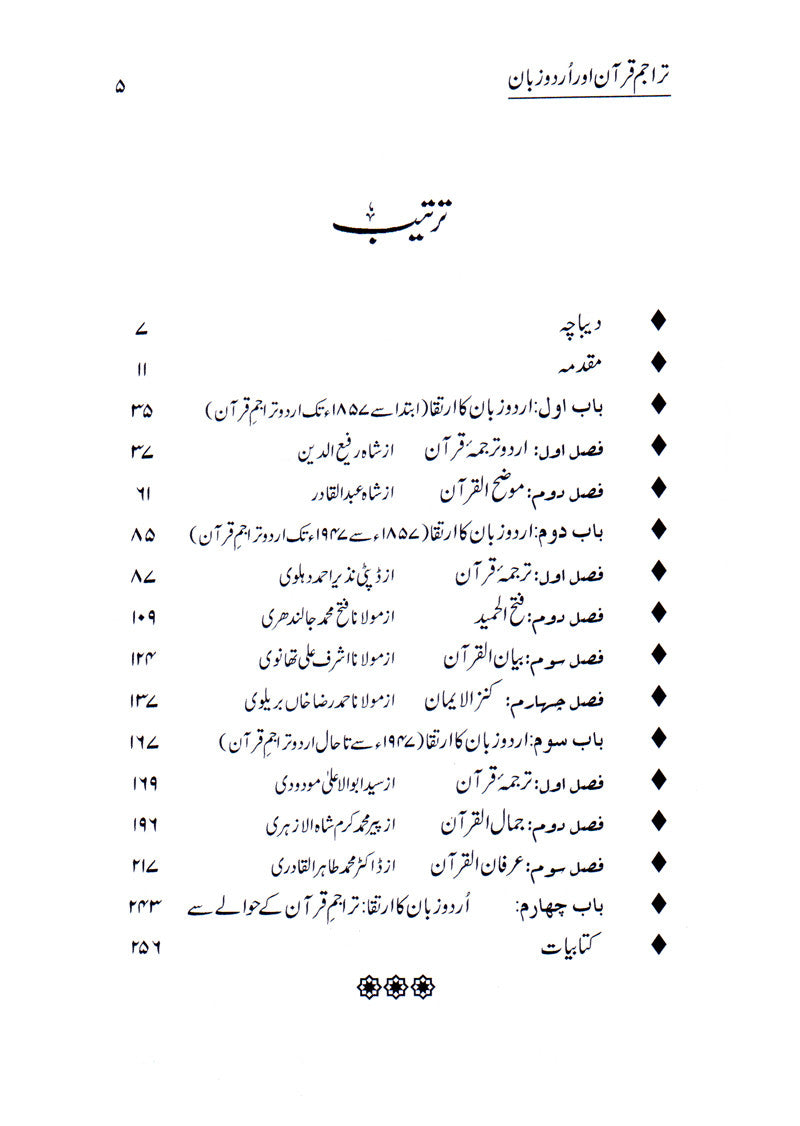 تراجم قرآن اور اُردو زبان ۵
ترتیب
♦ دیباچہ ۷
♦ مقدمہ ۱۱
♦ باب اول: اردو زبان کا ارتقا (ابتدا سے ۱۸۵۷ء تک اردو تراجمِ قرآن) ۳۵
♦ فصل اول: اردو ترجمۂ قرآن از شاہ رفیع الدین ۳۷
♦ فصل دوم: موضح القرآن از شاہ عبدالقادر ۶۱
♦ باب دوم: اردو زبان کا ارتقا (۱۸۵۷ء سے ۱۹۴۷ء تک اردو تراجمِ قرآن) ۸۵
♦ فصل اول: ترجمۂ قرآن از ڈپٹی نذیر احمد دہلوی ۸۷
♦ فصل دوم: فتح الحمید از مولانا فتح محمد جالندھری ۱۰۹
♦ فصل سوم: بیان القرآن از مولانا اشرف علی تھانوی ۱۲۴
♦ فصل چہارم: کنز الایمان از مولانا احمد رضا خاں بریلوی ۱۳۷
♦ باب سوم: اردو زبان کا ارتقا (۱۹۴۷ء سے تا حال اردو تراجمِ قرآن) ۱۶۷
♦ فصل اول: ترجمۂ قرآن از سید ابوالاعلیٰ مودودی ۱۶۹
♦ فصل دوم: جمال القرآن از پیر محمد کرم شاہ الازہری ۱۹۶
♦ فصل سوم: عرفان القرآن از ڈاکٹر محمد طاہر القادری ۲۱۷
♦ باب چہارم: اُردو زبان کا ارتقا: تراجمِ قرآن کے حوالے سے ۲۴۳
♦ کتابیات ۲۵۶